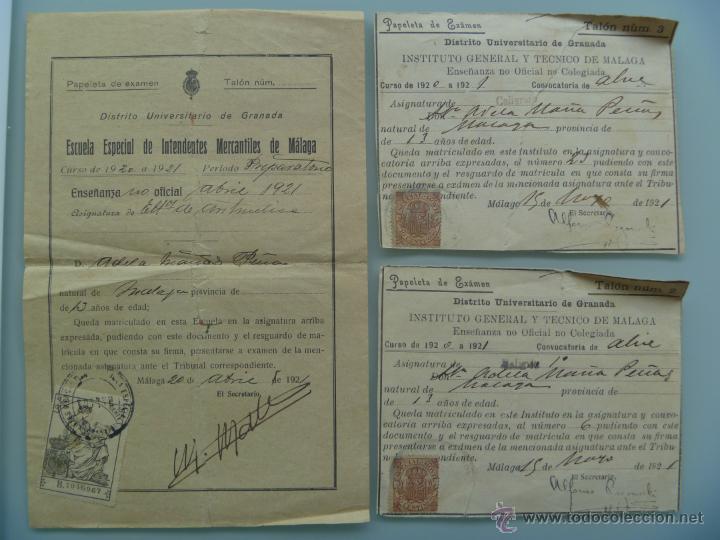 Papeleta de examen Talón núm.
Distrito Universitario de Granada
Escuela Especial de Intendentes Mercantiles de Málaga
Curso de 1920 a 1921 Período Preparatorio
Enseñanza no oficial abril 1921
Asignatura de de Aritmética
D. Adela Mañas Peña
natural de Malaga provincia de
de 13 años de edad;
Queda matriculado en esta Escuela en la asignatura arriba
expresada, pudiendo con este documento y el resguardo de ma-
trícula en que consta su firma, presentarse a exámen de la men-
cionada asignatura ante el Tribunal correspondiente.
Málaga 20 de Abril de 1921
El Secretario,
Papeleta de Exámen Talón núm. 3
Distrito Universitario de Granada
INSTITUTO GENERAL Y TECNICO DE MALAGA
Enseñanza no Oficial no Colegiada
Curso de 1920 a 1921 Convocatoria de
Asignatura de
Adela Maña Peñas
natural de Malaga provincia de
de 13 años de edad.
Queda matriculado en este Instituto en la asignatura y convo-
catoria arriba expresadas, al número 23 pudiendo con este
documento y el resguardo de matrícula en que consta su firma
presentarse a exámen de la mencionada asignatura ante el Tribu-
nal correspondiente.
Málaga 15 de Mayo de 1921
El Secretario
Papeleta de Exámen Talón núm. 2
Distrito Universitario de Granada
INSTITUTO GENERAL Y TECNICO DE MALAGA
Enseñanza no Oficial no Colegiada
Curso de 1920 a 1921 Convocatoria de
Asignatura de
Adela Maña Peñas
natural de Malaga provincia de
de 13 años de edad.
Queda matriculado en este Instituto en la asignatura y convo-
catoria arriba expresadas, al número 6 pudiendo con este
documento y el resguardo de matrícula en que consta su firma
presentarse a exámen de la mencionada asignatura ante el Tribu-
nal correspondiente.
Málaga 15 de Mayo de 1921
El Secretario,
todocoleccion.net
© www.todocoleccion.net